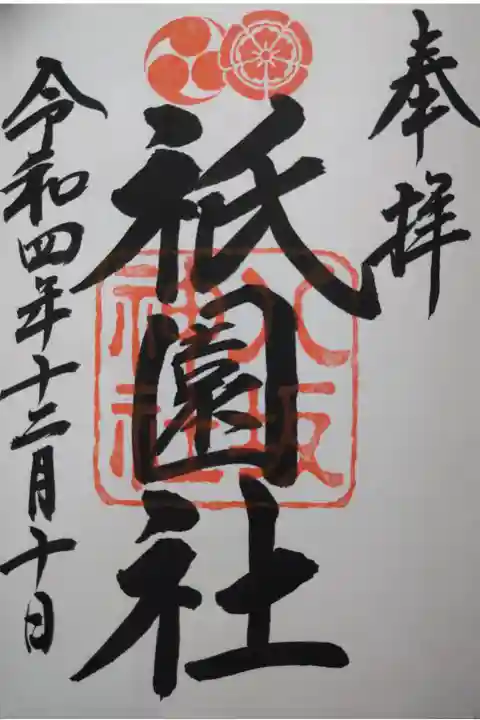 奉拝
祇園社
八坂神社
令和四年十二月十日